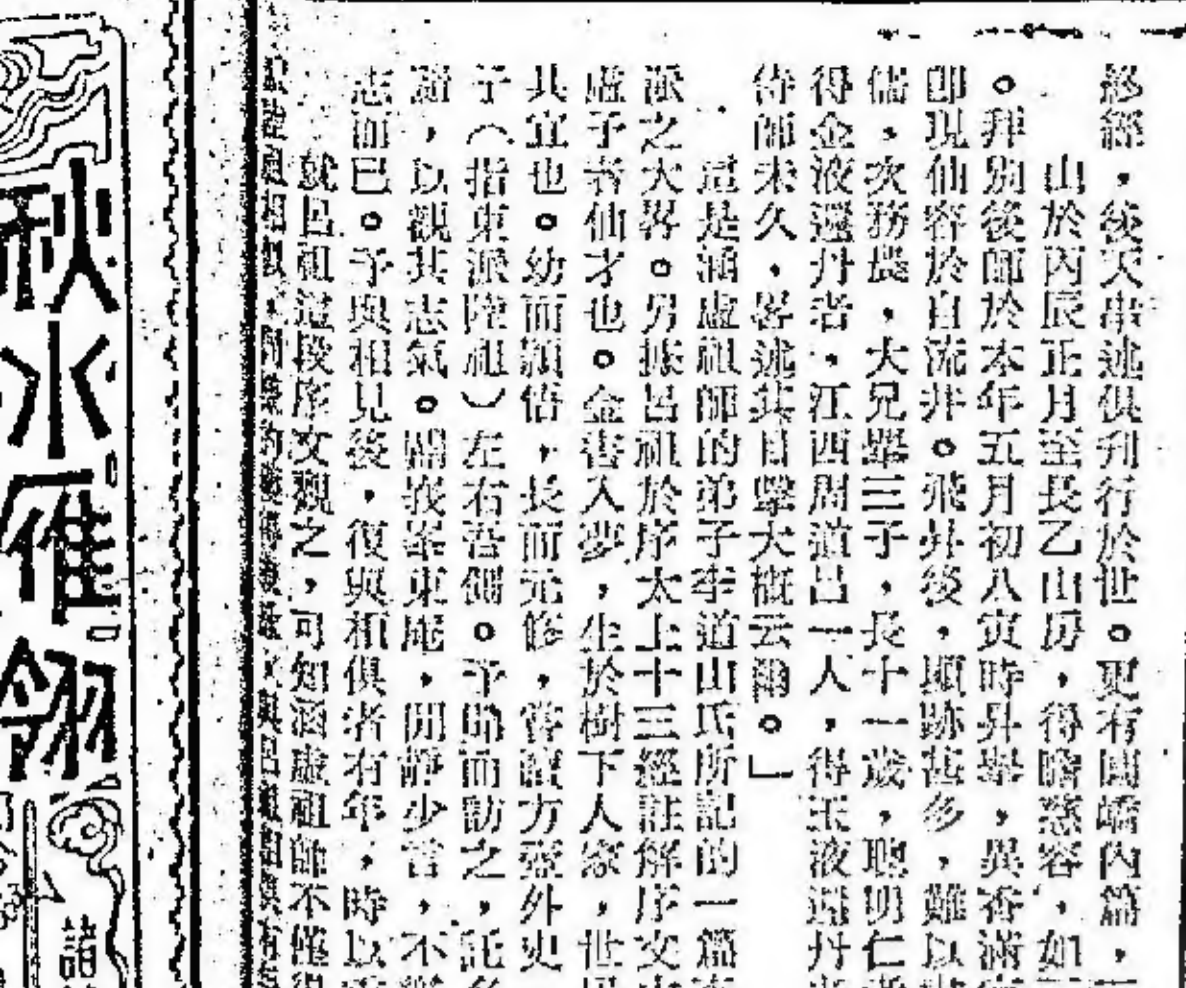 終經，後天串述俱刊行於世。更有圓嶠內篇，
山於丙辰正月至長乙山房，得瞻慈容，如
。拜別後師於本年五月初八寅時昇舉，異香滿
即現仙容於自流井。飛昇後，顯跡甚多，難以
儒，次務農，大兄舉三子，長十一歲，聰明仁
得金液還丹者，江西周道昌一人，得玉液還丹
侍師未久，畧述其目擊大概云爾。」
這是涵虛祖師的弟子李道山氏所記的一篇
派之大畧。另據呂祖於序太上十三經註解序文
虛子者仙才也。金書入夢，生於樹下人家，世
其宜也。幼而穎悟，長而元修，嘗讀方壺外史
子（指東派陸祖）左右吾側。予時而訪之，託
蹟，以觀其志氣。峩東庵，閒靜少言，不
志而已。予與相見後，復與相俱者有年，時以
就呂祖這段序文觀之，可知涵虛祖師不僅
秋水雁翎